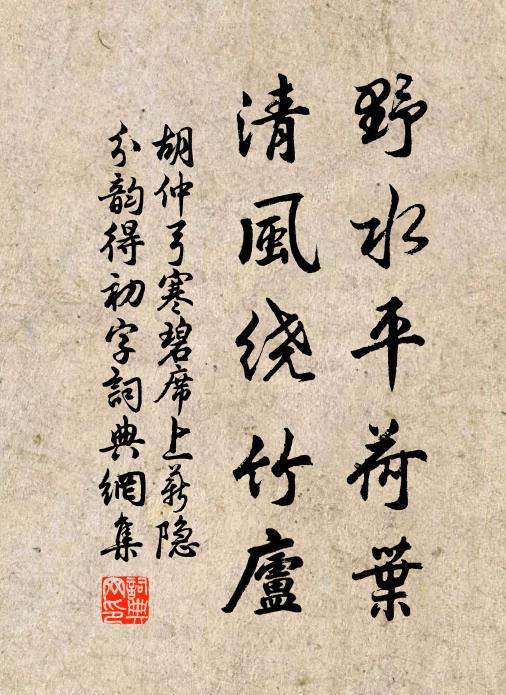 野水平荷葉
清風绕竹廬
胡仲弓寒碧席上薪隐
分韵得初字詞典網集
詞典網印